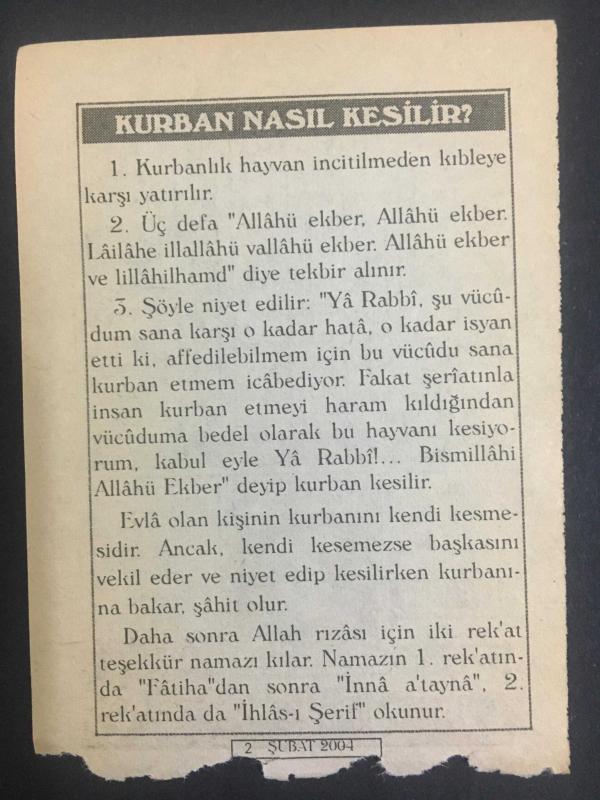 KURBAN NASIL KESİLİR?
1. Kurbanlık hayvan incitilmeden kıbleye
karşı yatırılır.
2. Üç defa "Allâhü ekber, Allâhü ekber.
Lâilâhe illallâhü vallâhü ekber. Allâhü ekber
ve lillâhilhamd" diye tekbir alınır.
3. Şöyle niyet edilir: "Yâ Rabbî, şu vücû-
dum sana karşı o kadar hatâ, o kadar isyan
etti ki, affedilebilmem için bu vücûdu sana
kurban etmem icâbediyor. Fakat şerîatınla
insan kurban etmeyi haram kıldığından
vücûduma bedel olarak bu hayvanı kesiyo-
rum, kabul eyle Yâ Rabbî!... Bismillâhi
Allâhü Ekber" deyip kurban kesilir.
Evlâ olan kişinin kurbanını kendi kesme-
sidir. Ancak, kendi kesemezse başkasını
vekil eder ve niyet edip kesilirken kurbanı-
na bakar, şâhit olur.
Daha sonra Allah rızâsı için iki rek'at
teşekkür namazı kılar. Namazın 1. rek'atın-
da "Fâtiha"dan sonra "İnnâ a'taynâ", 2.
rek'atında da "İhlâs-ı Şerif" okunur.
2 ŞUBAT 2004